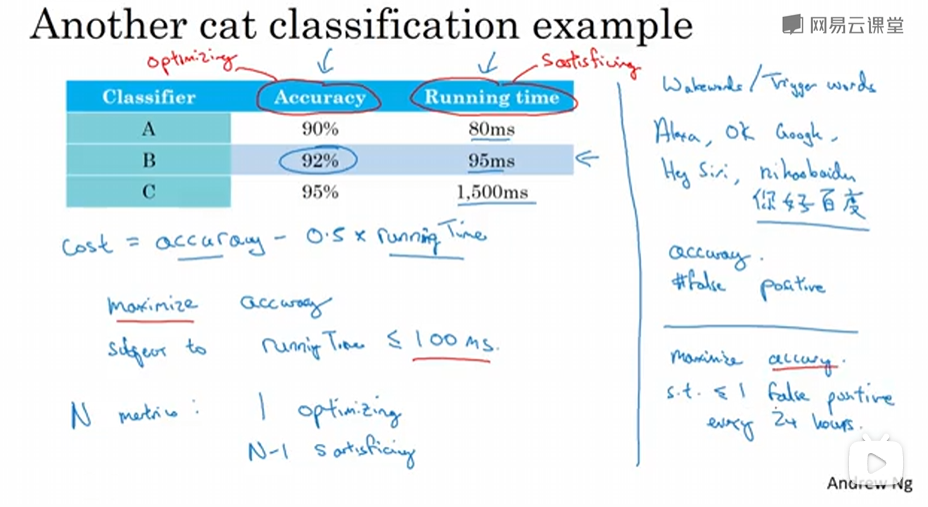 Another cat classification example
网易云课堂
optimizing
satisficing
Classifier Accuracy Running time
A 90% 80ms
B 92% 95ms
C 95% 1,500ms
cost = accuracy - 0.5 x running Time
maximize accuracy
subject to running Time ≤ 100 ms.
N metrics: 1 optimizing
N-1 satisficing
Wakewords / Trigger words
Alexa, OK Google,
Hey Siri, nihaobaidu
你好百度
accuracy.
#false positive
maximize accuracy.
s.t. ≤ 1 false positive
every 24 hours.
Andrew Ng